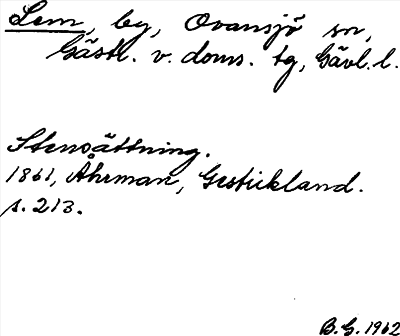 Lem, by, Ovansjö sn,
Gästr. v. doms. tg, Gävl. l.
Stensättning.
1861, Åhrman, Gestrickland.
s. 213.
B.G. 1962